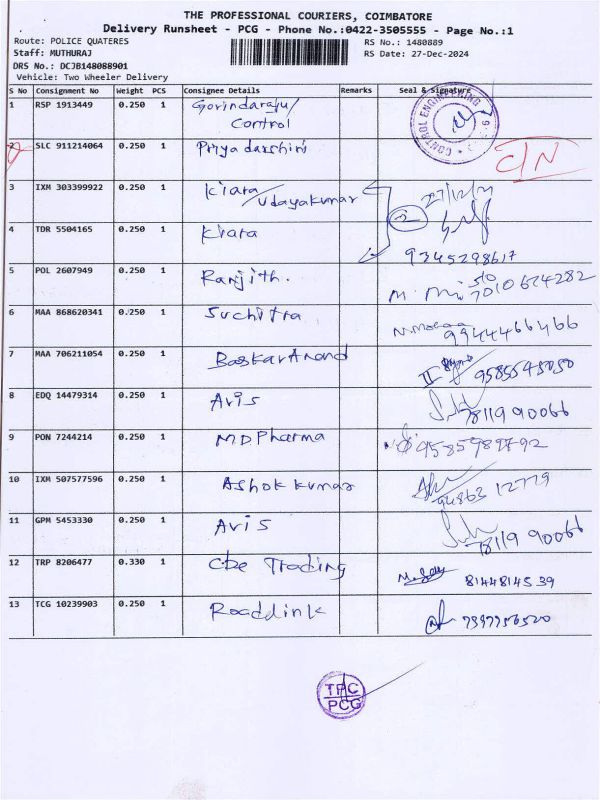 THE PROFESSIONAL COURIERS, COIMBATORE
Delivery Runsheet - PCG - Phone No.:0422-3505555 - Page No.:1
Route: POLICE QUATERES
RS No.: 1480889
Staff: MUTHURAJ
RS Date: 27-Dec-2024
DRS No.: DCJB148088901
Vehicle: Two Wheeler Delivery
S No Consignment No Weight PCS Consignee Details Remarks Seal & Signature
1 RSP 1913449 0.250 1 Govindaraju/
Control
CONTROL ENGINEERING
2 SLC 911214064 0.250 1 Priyadarshini C/N
3 IXM 303399922 0.250 1 Kiara/Udayakumar 27/12/
4 TDR 5504165 0.250 1 Kiara
9345298617
5 POL 2607949 0.250 1 Ranjith. 7010674282
6 MAA 868620341 0.250 1 Suchitra 9944466466
7 MAA 706211054 0.250 1 BaskarAnand 9585545050
8 EDQ 14479314 0.250 1 Aris 78119 90066
9 PON 7244214 0.250 1 MD Pharma 9585989792
10 IXM 507577596 0.250 1 Ashok kumar 94863 12779
11 GPM 5453330 0.250 1 Aris 78119 90066
12 TRP 8206477 0.330 1 Cbe Trading 8144814539
13 TCG 10239903 0.250 1 Roaddink 7397756520
TPC
PCG